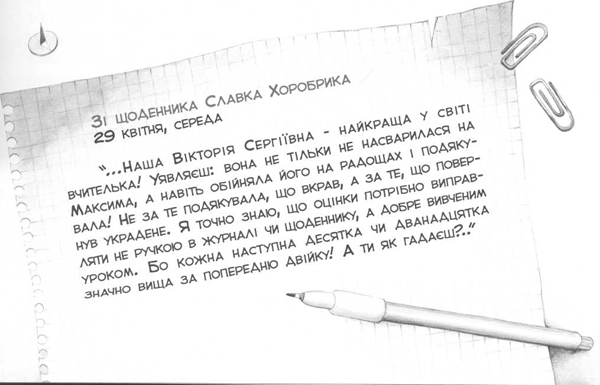 Зі щоденника Славка Хоробрика
29 квітня, середа
“...Наша Вікторія Сергіївна - найкраща у світі
вчителька! Уявляєш: вона не тільки не насварилася на
Максима, а навіть обійняла його на радощах і подяку-
вала! Не за те подякувала, що вкрав, а за те, що повер-
нув украдене. Я точно знаю, що оцінки потрібно виправ-
ляти не ручкою в журналі чи щоденнику, а добре вивченим
уроком. Бо кожна наступна десятка чи дванадцятка
значно вища за попередню двійку! А ти як гадаєш?..”